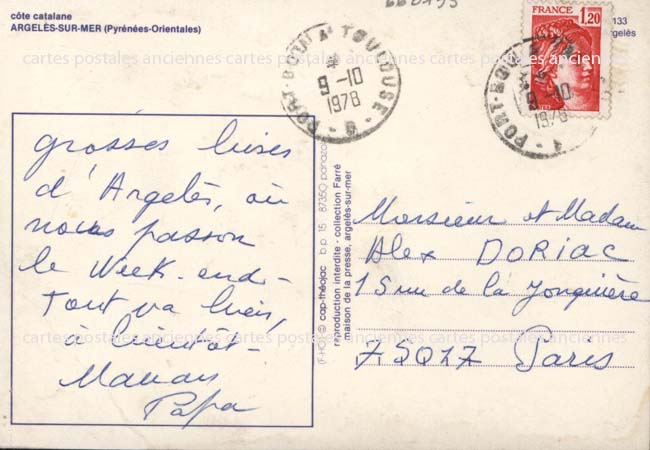 côte catalane
ARGELÈS-SUR-MER (Pyrénées-Orientales)
660795
133
gelès
FRANCE
1,20
PORT-BOU A TOULOUSE
9-10
1978
PORT-BOU A
-10
1978
cartes postales anciennes cartes postales anciennes cartes postales anciennes
grosses bises
d'Argelès, où
nous passon
le Week-end-
Tout va bien,
à bientôt-
Maman
Papa
(F-HG) © cap-théojac b.p. 15 - 87350 panazol
reproduction interdite - collection Farré
maison de la presse, argelès-sur-mer
Monsieur et Madam
Alex DORIAC
15 rue de la Jonquière
75017 Paris
cartes postales anciennes cartes postales anciennes cartes postales anciennes